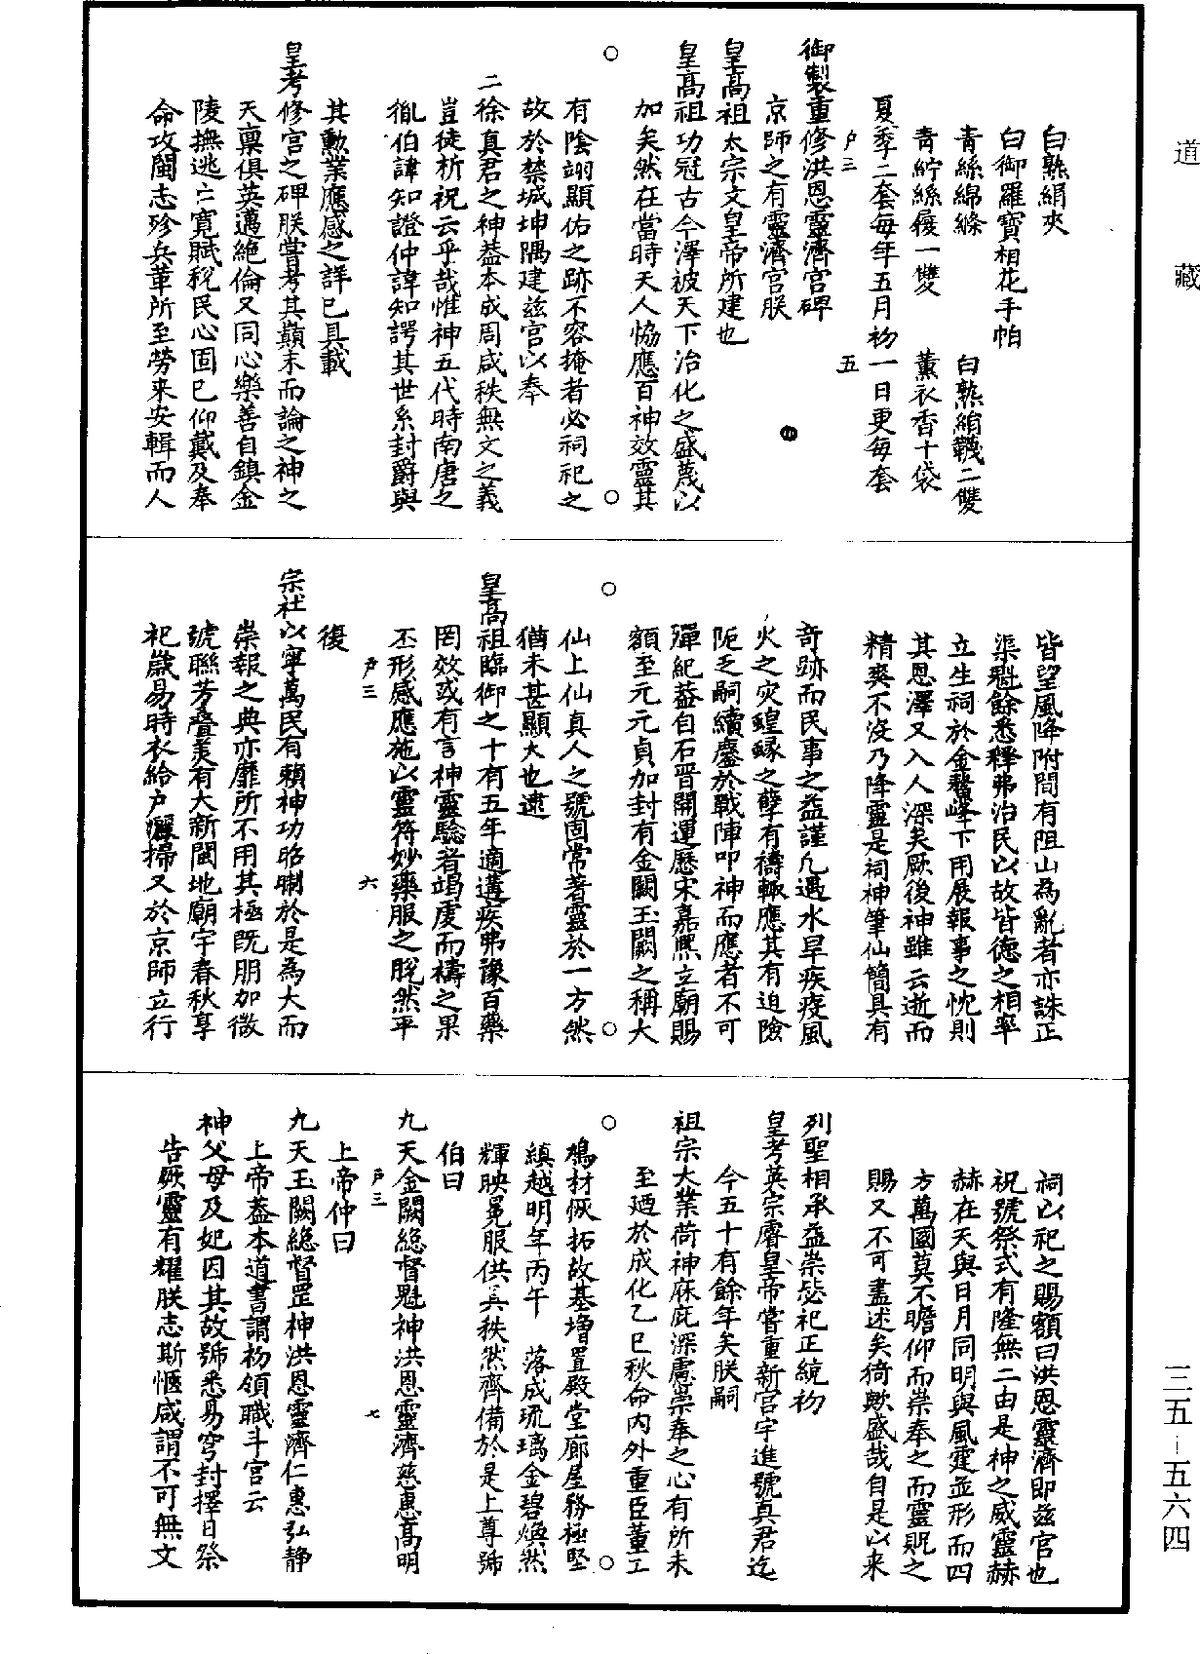 道藏
白熟絹夾
白御羅寶相花手帕
青絲綿縧　白熟絹襪二雙
青紵絲履一雙　薰衣香十袋
夏季二套每年五月初一日更每套
戶三　五
御製重修洪恩靈濟宮碑
京師之有靈濟宮朕
皇高祖太宗文皇帝所建也
皇高祖功冠古今澤被天下治化之盛蔑以
加矣然在當時天人恊應百神效靈其
有陰翊顯佑之跡不容掩者必祠祀之
故於禁城坤隅建兹宮以奉
二徐真君之神葢本成周咸秩無文之義
豈徒祈祝云乎哉惟神五代時南唐之
胤伯諱知證仲諱知諤其世系封爵與
其勳業應感之詳已具載
皇考修宮之碑朕嘗考其顛末而論之神之
天禀俱英邁絶倫又同心樂善自鎮金
陵撫逃亡寬賦稅民心固已仰戴及奉
命攻閩志殄兵革所至勞來安輯而人
皆望風降附間有阻山為亂者亦誅正
渠魁餘悉釋弗治民以故皆德之相率
立生祠於金鰲峰下用展報事之忱則
其恩澤又入人深矣厥後神雖云逝而
精爽不沒乃降靈是祠神筆仙簡具有
奇跡而民事之益謹凡遇水旱疾疫風
火之灾蝗蝝之孽有禱輙應其有迫險
阨乏嗣續鏖於戰陣叩神而應者不可
殫紀葢自石晋開運歷宋嘉熙立廟賜
額至元元貞加封有金闕玉闕之稱大
仙上仙真人之號固常著靈於一方然
猶未甚顯大也逮
皇高祖臨御之十有五年適遘疾弗豫百藥
罔效或有言神靈驗者竭虔而禱之果
丕形感應施以靈符妙藥服之脫然平
戶三　六
復
宗社以寧萬民有賴神功昭晰於是為大而
崇報之典亦靡所不用其極既册加徽
號聯芳疊美有大新閩地廟宇春秋享
祀歲易時衣給户灑掃又於京師立行
祠以祀之賜額曰洪恩靈濟即兹宮也
祝號祭式有隆無二由是神之威靈赫
赫在天與日月同明與風霆並形而四
方萬國莫不瞻仰而崇奉之而靈貺之
賜又不可盡述矣猗歟盛哉自是以来
列聖相承益崇毖祀正統初
皇考英宗睿皇帝嘗重新宮宇進號真君迄
今五十有餘年矣朕嗣
祖宗大業荷神庥庇深慮崇奉之心有所未
至廼於成化乙巳秋命内外重臣董工
鳩材恢拓故基增置殿堂廊屋務極堅
縝越明年丙午　落成琉璃金碧煥然
輝映冕服供具秩然齊備於是上尊號
伯曰
九天金闕總督魁神洪恩靈濟慈惠高明
戶三　七
上帝仲曰
九天玉闕總督罡神洪恩靈濟仁惠弘静
上帝葢本道書謂初領職斗宮云
神父母及妃因其故號悉易穹封擇日祭
告厥靈有耀朕志斯愜咸謂不可無文
三五-五六四